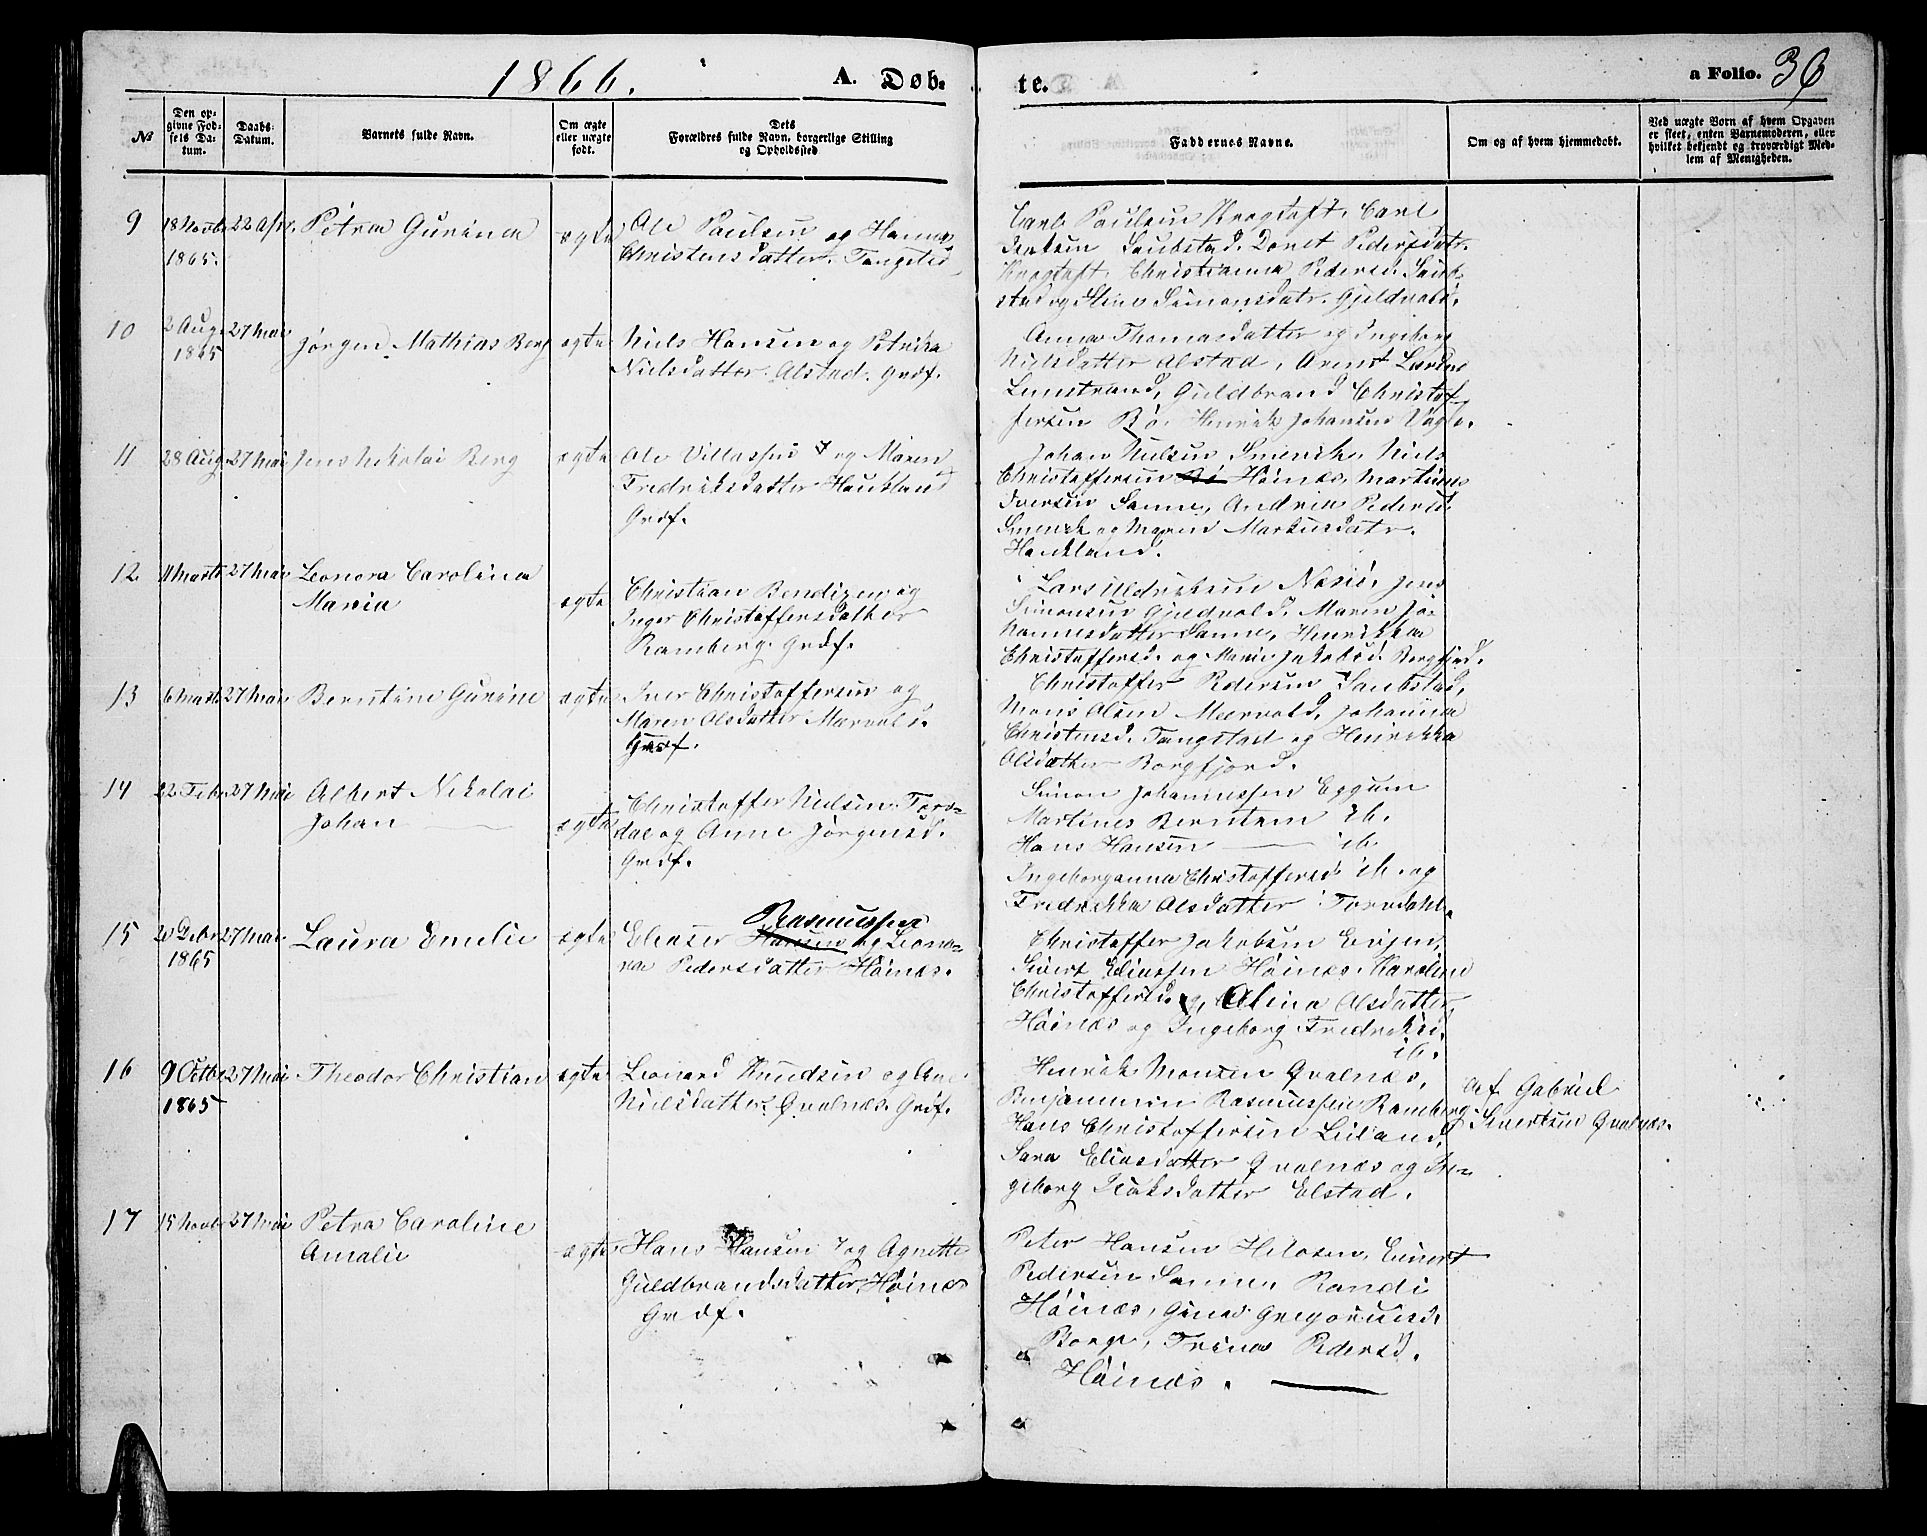 1866.
A. Døb-
te.
a Folio. 36
№
Den op-
givne Fød-
sels Da-
tum.
Daabs-
Datum.
Barnets fulde Navn.
Om ægte
eller uægte
født.
Dets
Forældres fulde Navn, borgerlige Stilling
og Opholdssted
Faddernes Navne.
Om og af hvem hjemmedøbt.
Ved uægte Børn af hvem Opgaven
er skeet, enten Barnemoderen, eller
hvilket bekjendt og troværdigt Med-
lem af Menigheden.
9
1865.
Petra Gurina
ægte
Ole Paulsen og Hanna
Christensdatter. Tangsted
Carl Paulsen Krogtoft, Carl
Saubstad. Doret Pedersdatr.
Krogtoft, Christianna Pedersd. Saub-
stad og Stina Simonsdatr. Gjeldvold.
10
2 Aug.
1865
27 Mai
Jørgen Mathias Berg
ægte
Niels Hansen og Petrika
Nielsdatter. Alstad. Grdf.
Anna Thomasdatter og Ingeborg
Nielsdatter Alstad, Arent
Limstrand, Guldbrand Christof-
fersen Bø. Henrik Johansen Vagle.
11
28 Aug.
27 Mai
Jens Nikolai Berg
ægte
Ole Villassen † og Maren
Fredriksdatter Haukland
Grdf.
Johan Nielsen Smerik. Niels
Christoffersen Bø Høinæs, Martinus
Iversen Sanne, Andrea Pedersd.
Smerik og Maren Markusdatr.
Haukland.
12
11 Marts
27 Mai
Leonora Carolina
Maria
ægte
Christian Bendixen og
Inger Christoffersdatter
Ramberg. Grdf.
Lars Uldriksen Næsie, Jens
Simonsen Gjeldvold. Maren Jo-
hannesdatter Sanne, Henrikka
Christoffersd. og Marie Jakobsd. Borgfjord.
13
6 Marts
27 Mai
Berntine Gurine
ægte
Iver Christoffersen og
Maren Olsdatter Mærvold.
Grdf.
Christoffer Pedersen Saubstad,
Mons Olsen Mærvold, Johanna
Christensd. Tangstad og Henrikka
Olsdatter Borgfjord.
14
22 Febr.
27 Mai
Albert Nikolai
Johan
ægte
Christoffer Nielsen. Torv-
dal og Anne Jørgensd.
Grdf.
Simon Johannessen Eggum
Martines Berntsen ib.
Hans Hansen ib.
Ingeborganna Christoffersd. ib. og
Fredrikka Olsdatter Torvdahl.
15
1865
27 Mai
Laura Emelie
ægte
Rasmussen
Eleaser Hansen og Leono-
ra Pedersdatter Høinæs.
Christoffer Jakobsen Evjen,
Sivert Eliassen Høinæs. Karoline
Christoffersd. og, Olina Olsdatter
Høinæs og Ingeborg Fredriksd.
ib.
16
9 Octbr
1865
27 Mai
Theodor Christian
ægte
Leonard Knudsen og Ane
Nielsdatter. Qvalnæs. Grdf.
Henrik Monsen Qvalnæs,
Benjaminn Rasmussen Ramberg
Hans Christoffersen Leiland,
Sara Eliasdatter Qvalnæs og In-
geborg Isaksdatter Elstad.
af Gabriel
Sivertsen Qvalnæs.
17
15 Novbr
27 Mai
Petra Caroline
Amalie
ægte
Hans Hansen † og Agnette
Guldbrandsdatter, Høinæs
Grdf.
Peter Hansen Hilosen, Einert
Pedersen Sanne, Randi
Høinæs, Gina Gregoriusd.
Borge, Trina Pedersd.
Høinæs.